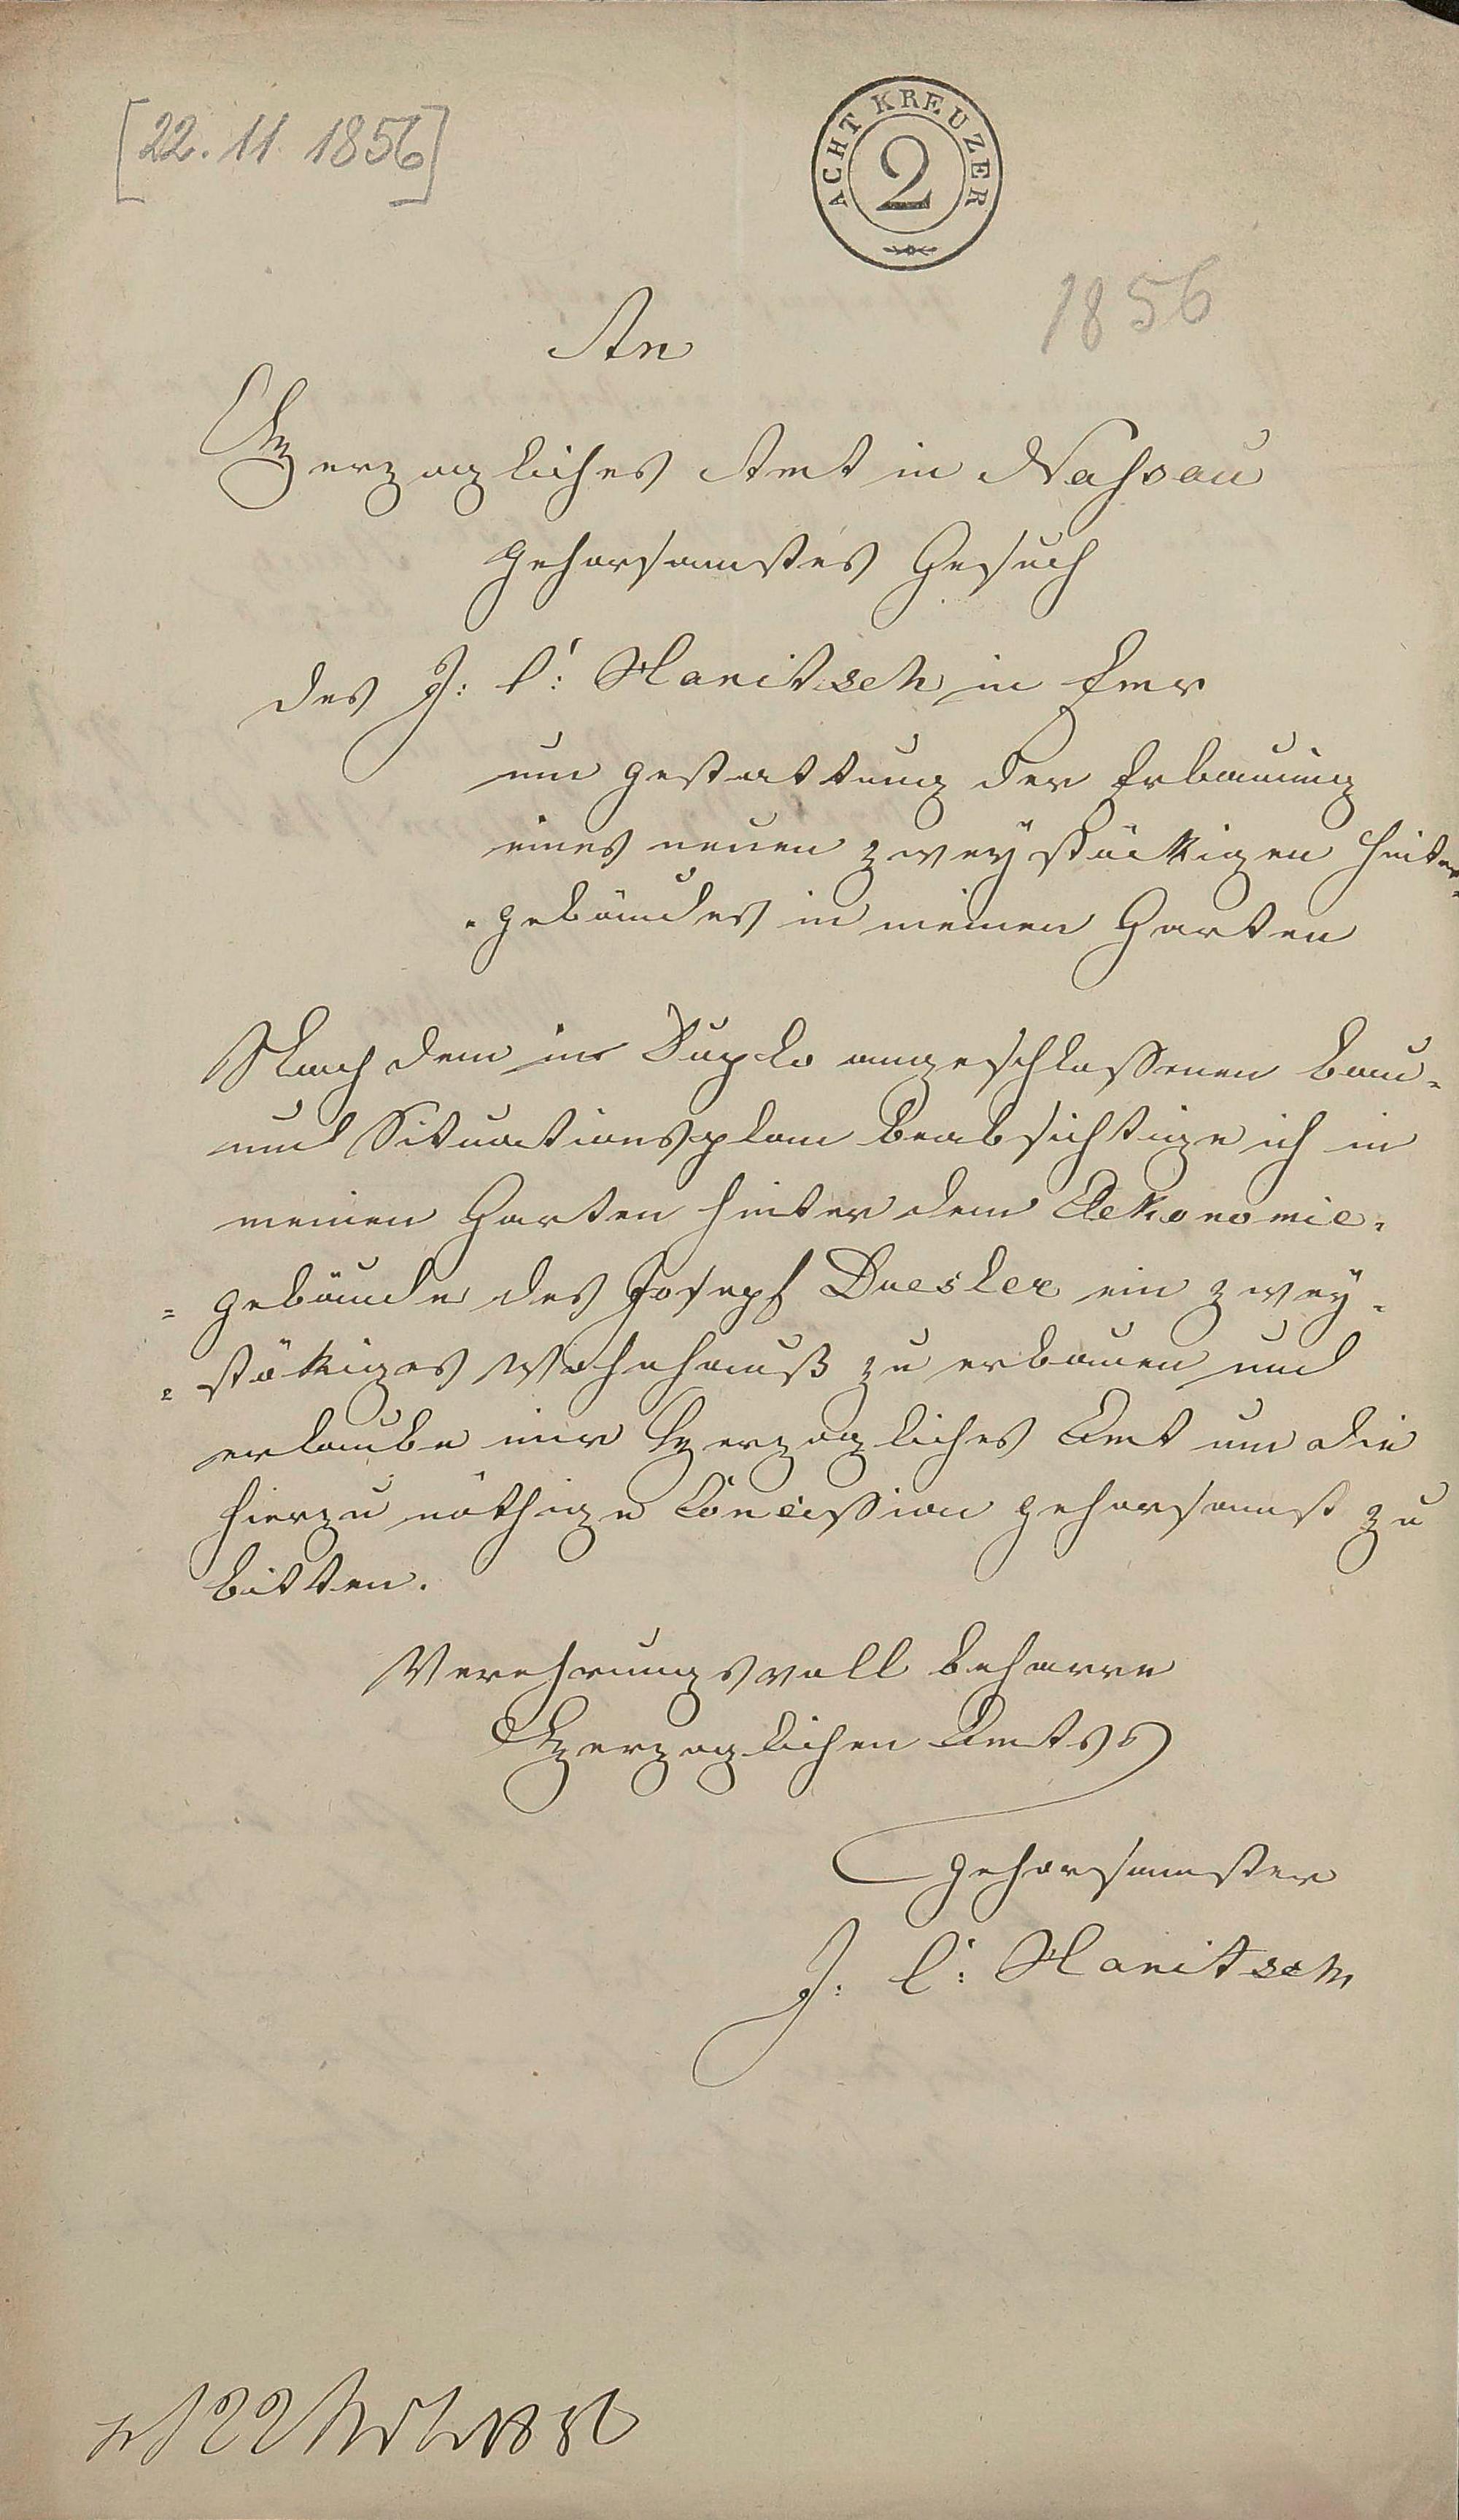 [22. 11 1856]
ACHT KREUZER
2
1856
An
Herzogliches Amt in Nassau
gehorsamstes Gesuch
des J: C: Hanitsch in Ems
um gestattung der Erbauung
eines neuen zweystöckigen Hinter-
-gebäudes in meinen Garten
Nach dem in Duplo angeschlossenen Bau-
und Situationsplan beabsichtige ich in
meinen Garten hinter dem Oekonomie-
=gebäude des Joseph Duesler ein zwey-
=stökiges Wohnhauß zu erbauen und
erlaube mir Herzogliches Amt um die
hierzu nöthige Concession gehorsamst zu
bitten.
Verehrungsvoll beharre
Herzoglichen Amtes
gehorsamster
J: C: Hanitsch
22 1856